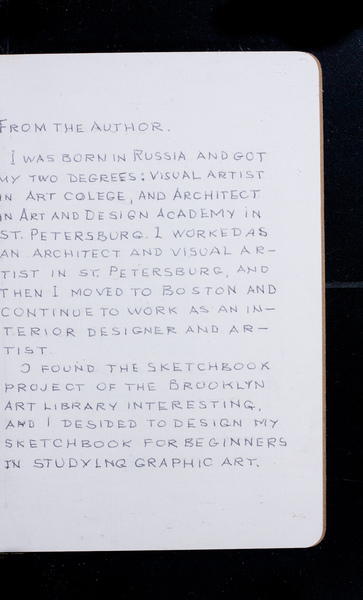 FROM THE AUTHOR.
I WAS BORN IN RUSSIA AND GOT
MY TWO DEGREES: VISUAL ARTIST
IN ART COLEGE, AND ARCHITECT
IN ART AND DESIGN ACADEMY IN
ST. PETERSBURG. I WORKED AS
AN ARCHITECT AND VISUAL AR-
TIST IN ST. PETERSBURG, AND
THEN I MOVED TO BOSTON AND
CONTINUE TO WORK AS AN IN-
TERIOR DESIGNER AND AR-
TIST.
I FOUND THE SKETCHBOOK
PROJECT OF THE BROOKLYN
ART LIBRARY INTERESTING,
AND I DESIDED TO DESIGN MY
SKETCHBOOK FOR BEGINNERS
IN STUDYING GRAPHIC ART.